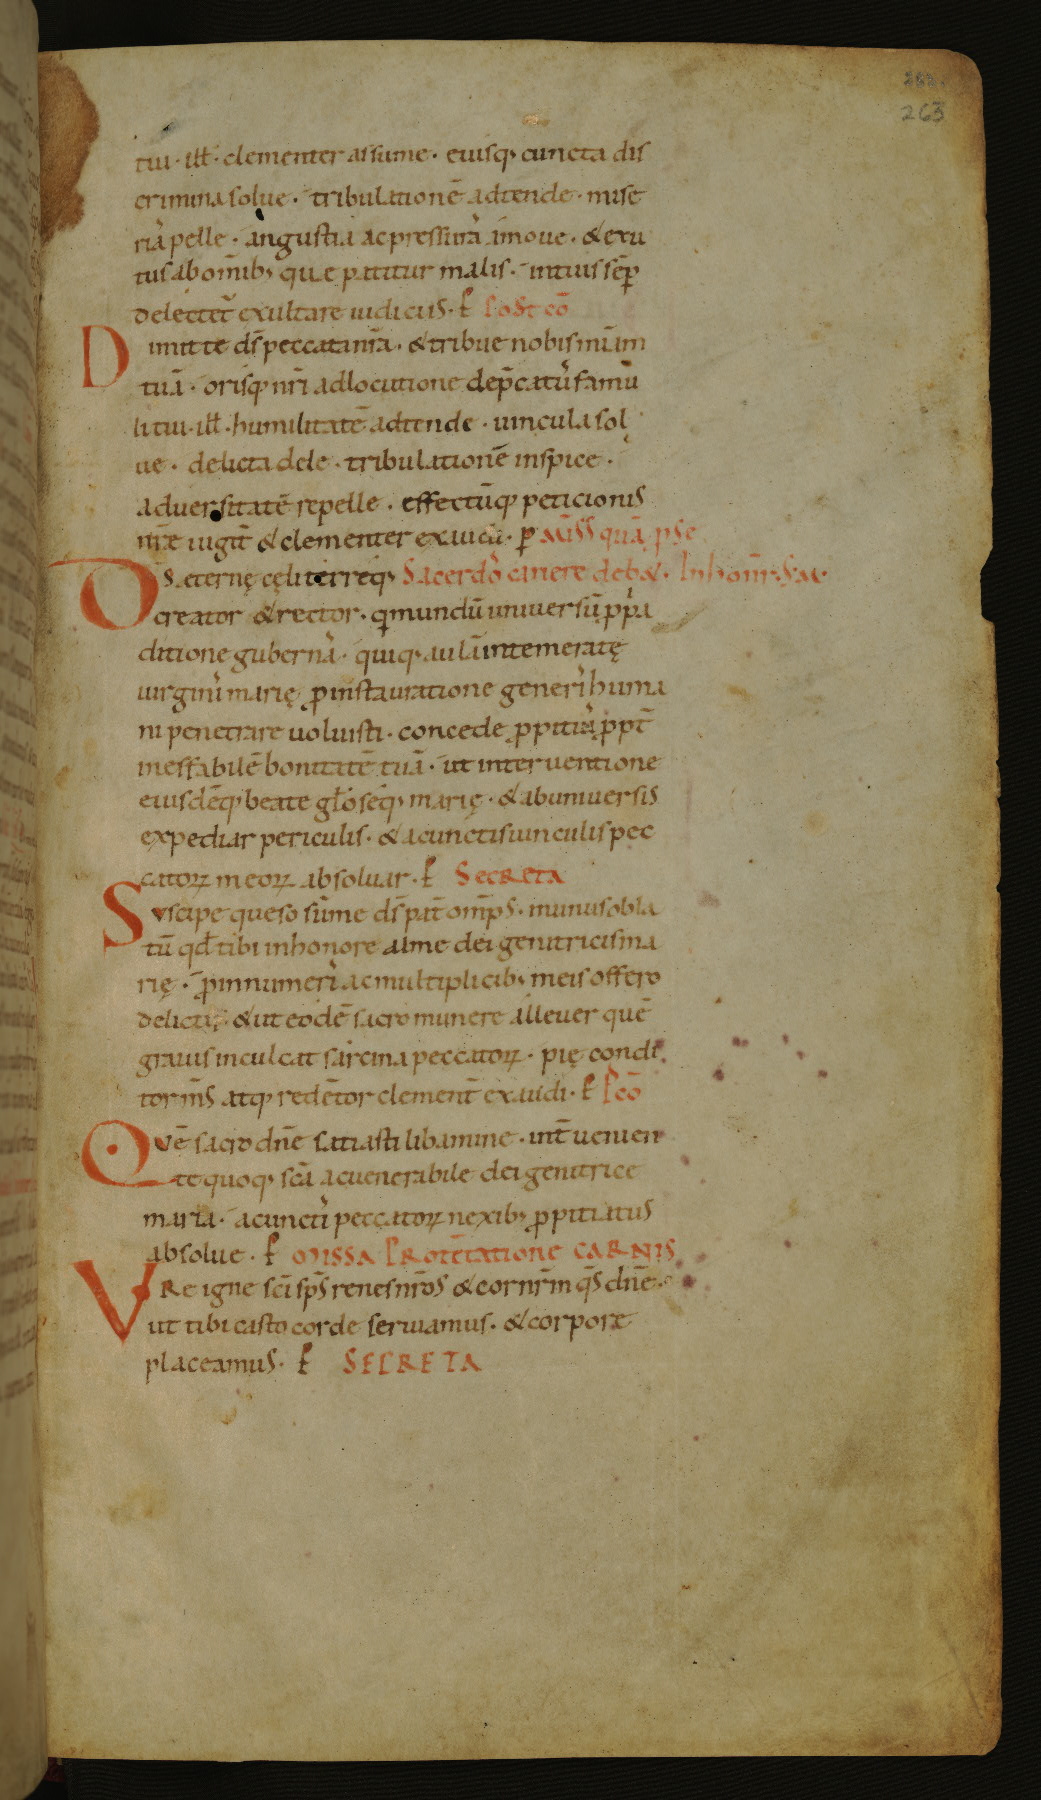 263
tui · ill̅ · clementer assume · eiusq; cuncta dis
crimina solue · tribulationē adtende · mise
riā pelle · angustiā ac pressurā amoue · & exu
tus ab om̅ib; que patitur malis · intuis sēp
delectet̅ exultare iudiciis · P̱ Post cō
Dimitte ds̅ peccata nr̅a · & tribue nobis mia̅m
tuā · orisq; nr̅i adlocutione dep̅catū famu
li tui · ill̅ · humilitatē adtende · uincula sol
ue · delicta dele · tribulationē inspice ·
aduersitatē repelle · effectūq; peticionis
nr̅e iugit̅ & clementer exaudi · p̱ Miss quā p se
Ds̅ eternę cęli terreq; Sacerdo̅ canere deb& · In hon̅r̅ s̅ mar
creator & rector · q̇ mundū uniuersū p̱p̅a
ditione gubernas · quiq; aulā intemeratę
uirginis marię p̱ instauratione generis huma
ni penetrare uoluisti · concede p̱pitius p̱pt̅
ineffabilē bonitatē tuā · ut interuentione
eiusdēq; beate gl̅oseq; marię · & ab uniuersis
expediar periculis · & a cunctis uinculis pec
catoꝝ meoꝝ absoluar · P̱ Secreta
Suscipe queso sūme ds̅ pat̅ omp̅s · munus obla
tū qd̅ tibi in honore alme dei genitricis ma
rię · p̱ innumeris ac multiplicib; meis offero
delictis & ut eodē sacro munere alleuer quē
grauis inculcat sarcina peccatoꝝ · pię condi
tor om̅s atq; redētor clement̅ exaudi · P̱ P̱cō
Quē sacro dn̅e satiasti libamine · int̅uenien
te quoq; sc̅a ac uenerabile dei genitrice
maria · a cunctis peccatoꝝ nexib; p̱pitiatus
absolue · P̱ Missa Pro tēptatione carnis
Vre igne sc̅i sp̅s renes nr̅os & cor nr̅m qs̅ dn̅e
ut tibi casto corde seruiamus · & corpore
placeamus · P̱ Secreta